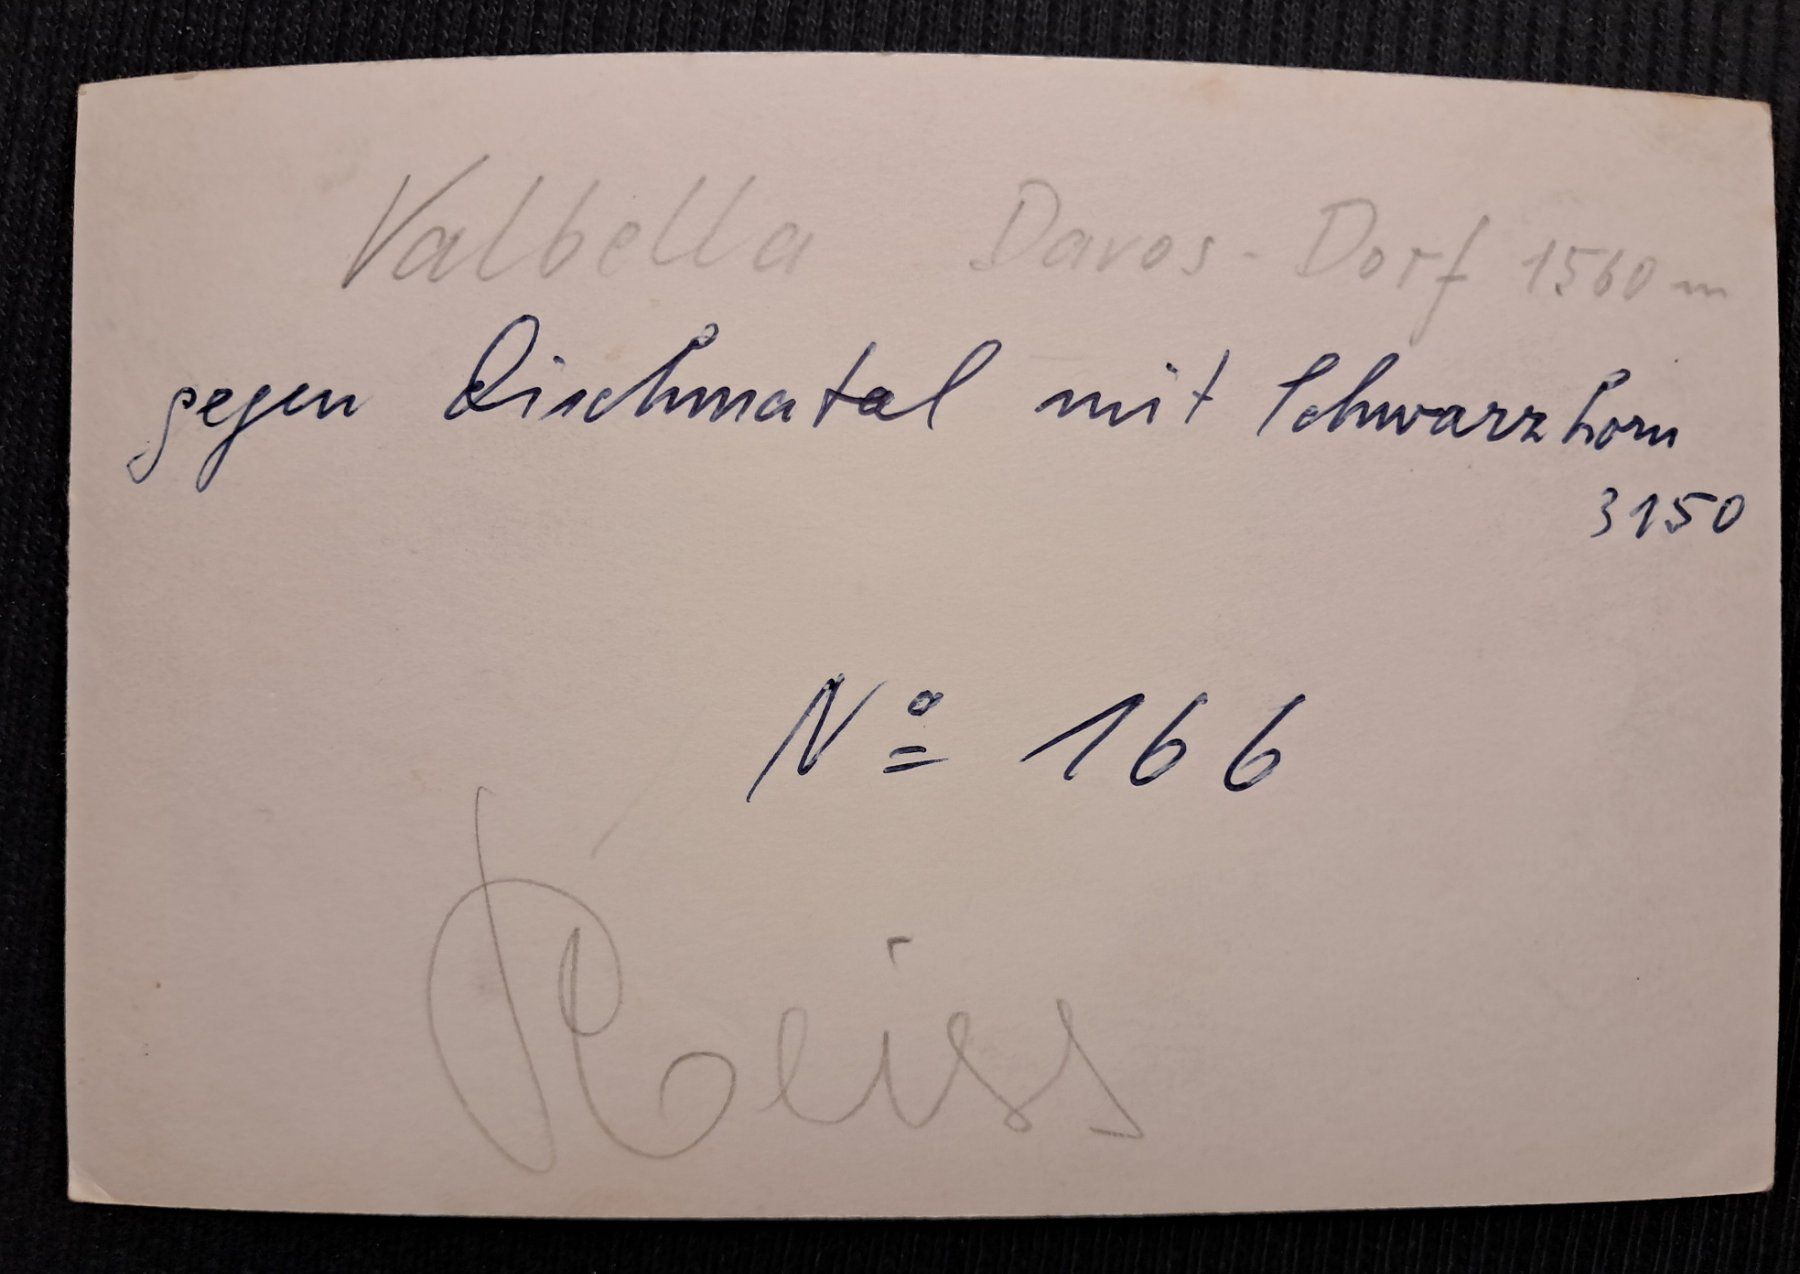 Valbella Davos-Dorf 1560 m
gegen Dischmatal mit Schwarzhorn
3150
Nº 166
Reiss